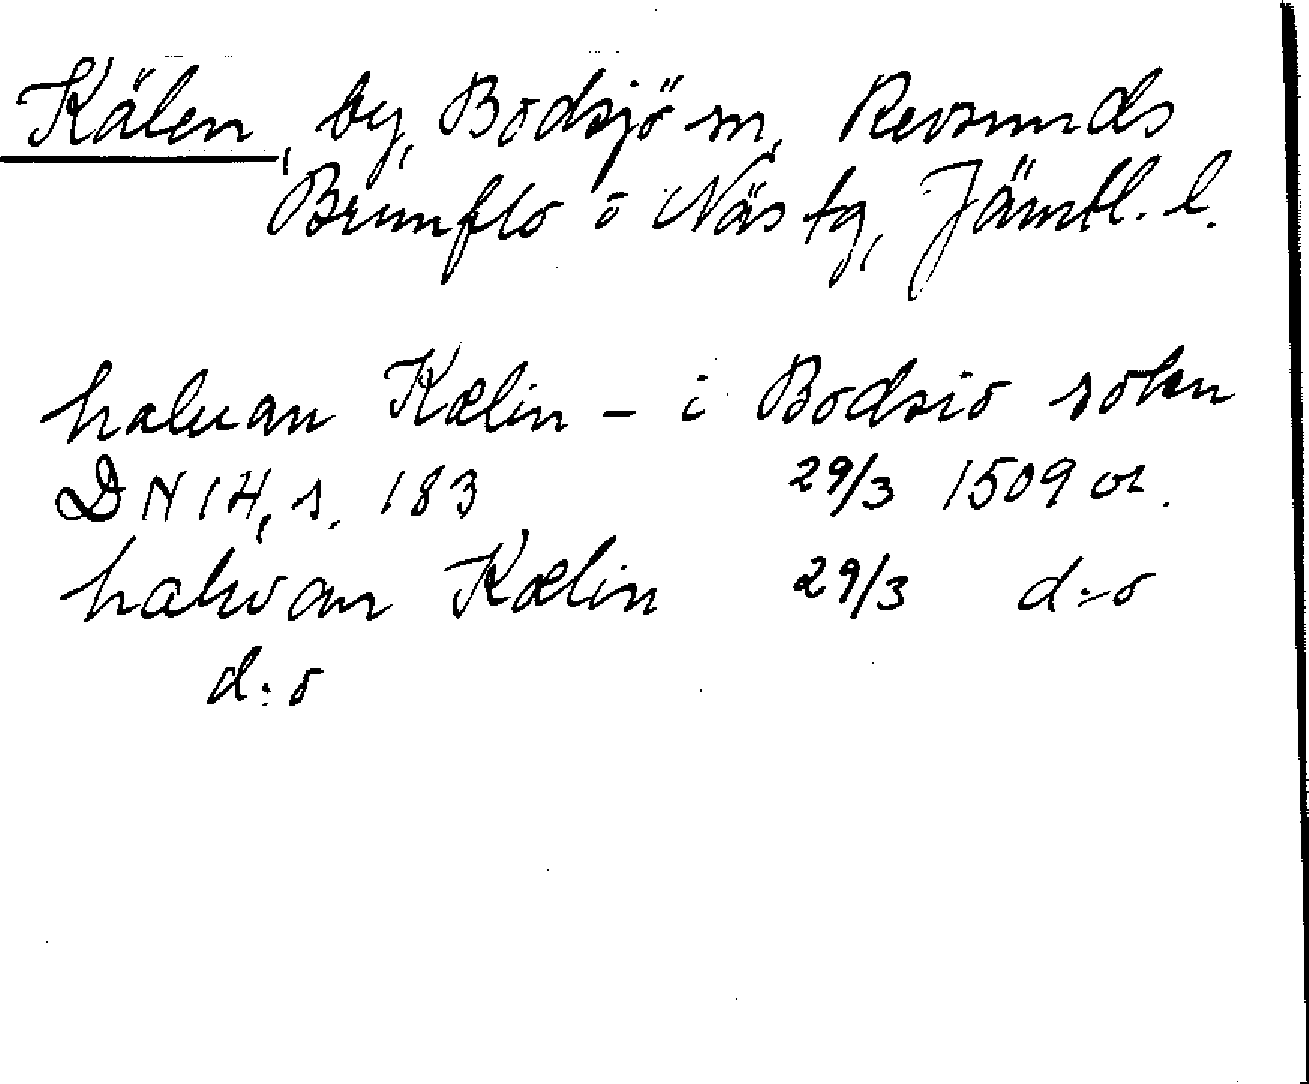 Kälen, by, Bodsjö sn, Revsunds
Brunflo o Näs tg, Jämtl. l.
haluan Kælin - i Bodsio sokn
DN 14, s. 183 29/3 1509 or.
halvan Kælin 29/3 d:o
d:o